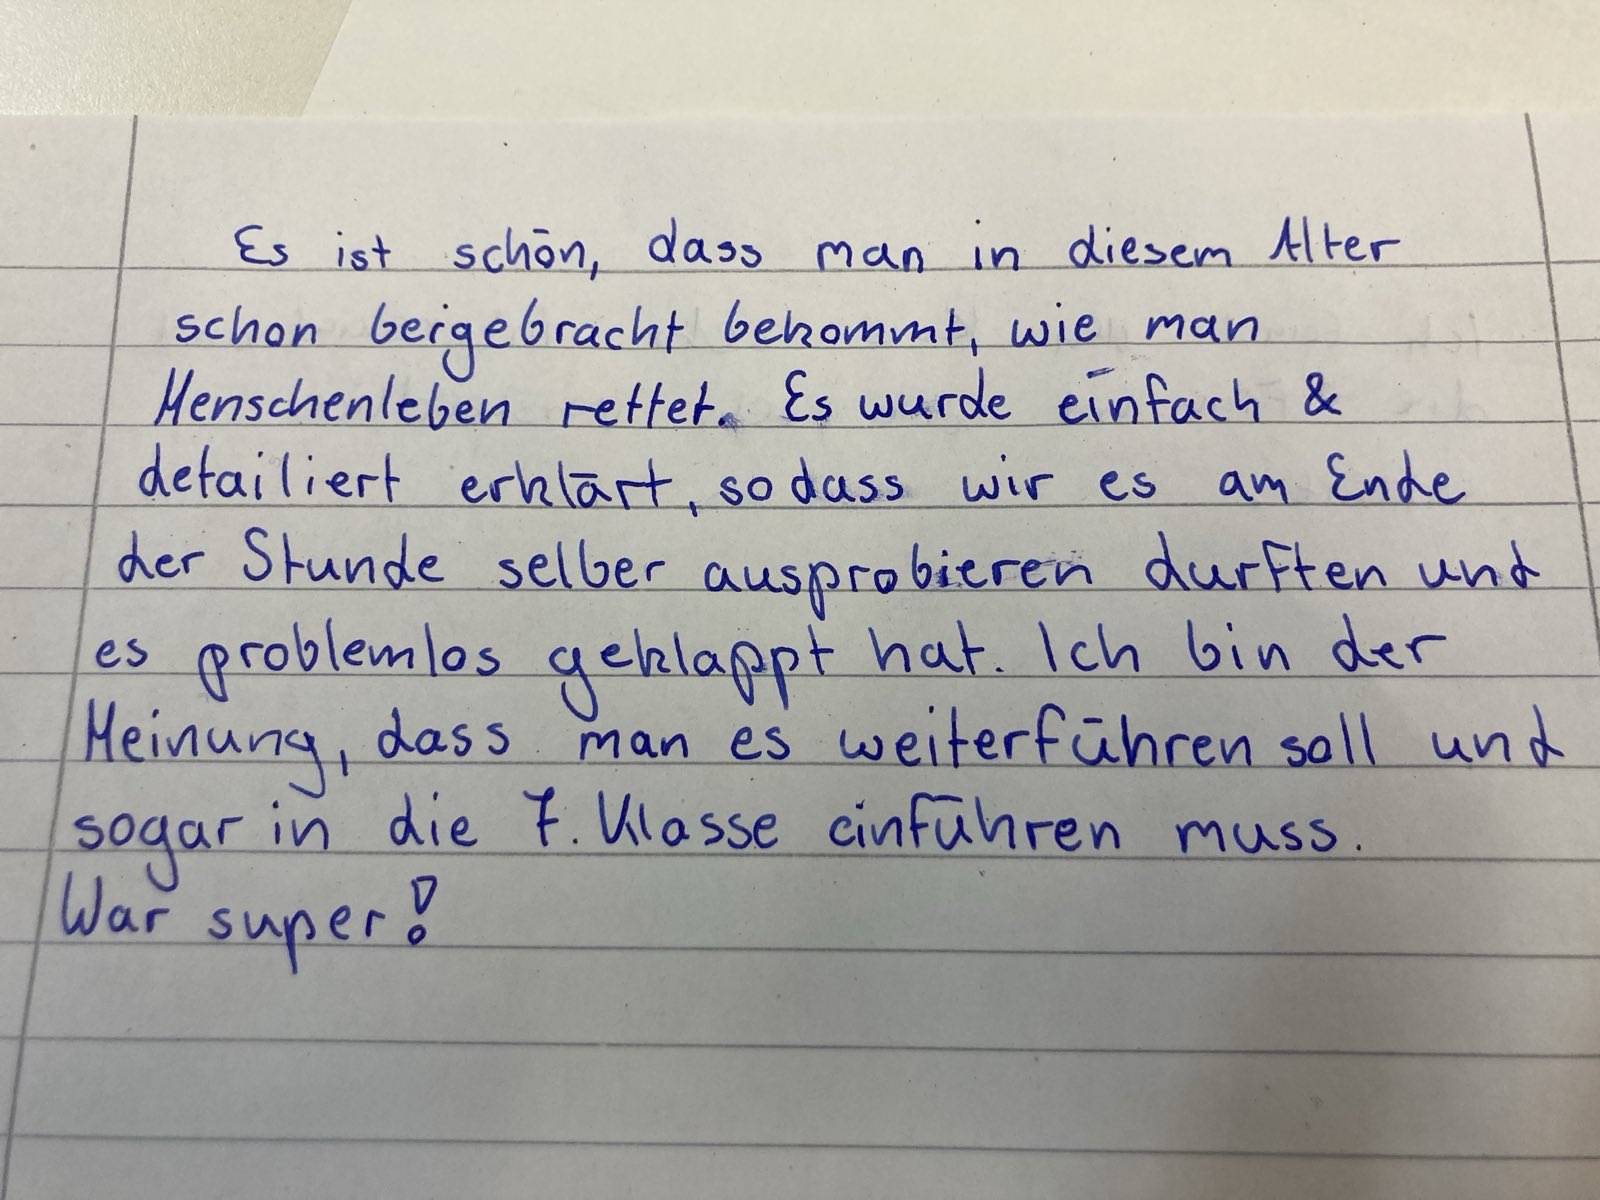 Es ist schön, dass man in diesem Alter
schon beigebracht bekommt, wie man
Menschenleben rettet. Es wurde einfach &
detailiert erklärt, sodass wir es am Ende
der Stunde selber ausprobieren durften und
es problemlos geklappt hat. Ich bin der
Meinung, dass man es weiterführen soll und
sogar in die 7. Klasse einführen muss.
War super!